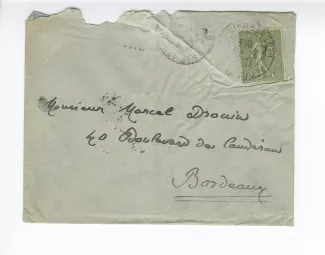 Monsieur Marcel Drouin
40 Boulevard de Caudéran
Bordeaux